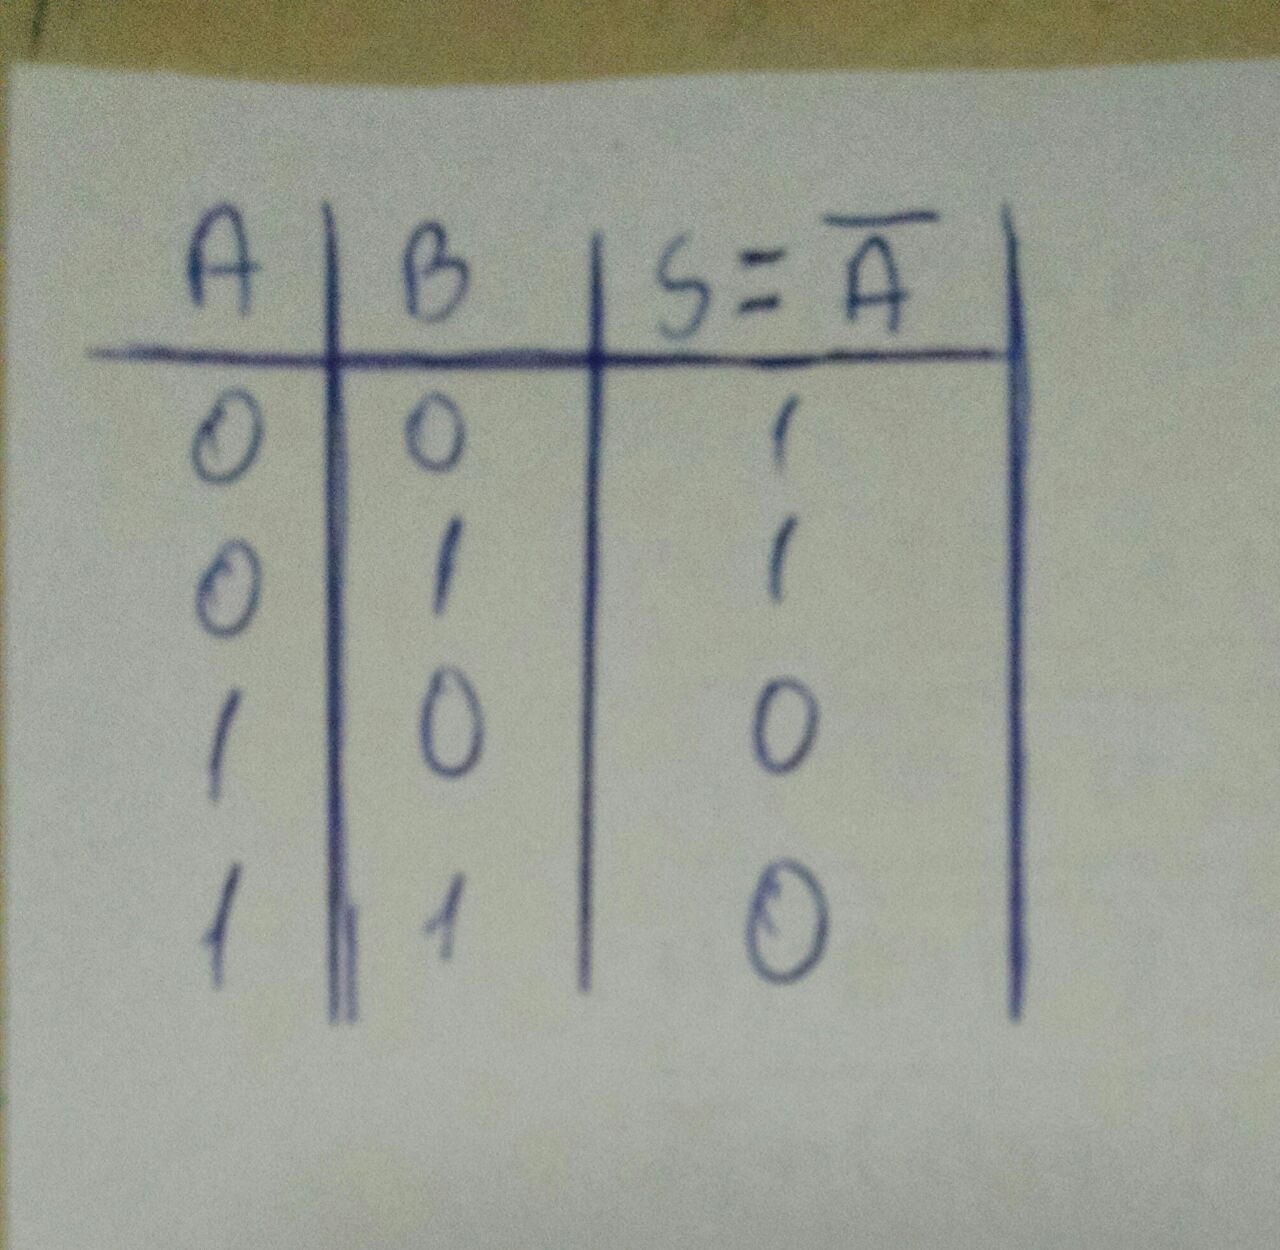 A B S = A̅
0 0 1
0 1 1
1 0 0
1 1 0